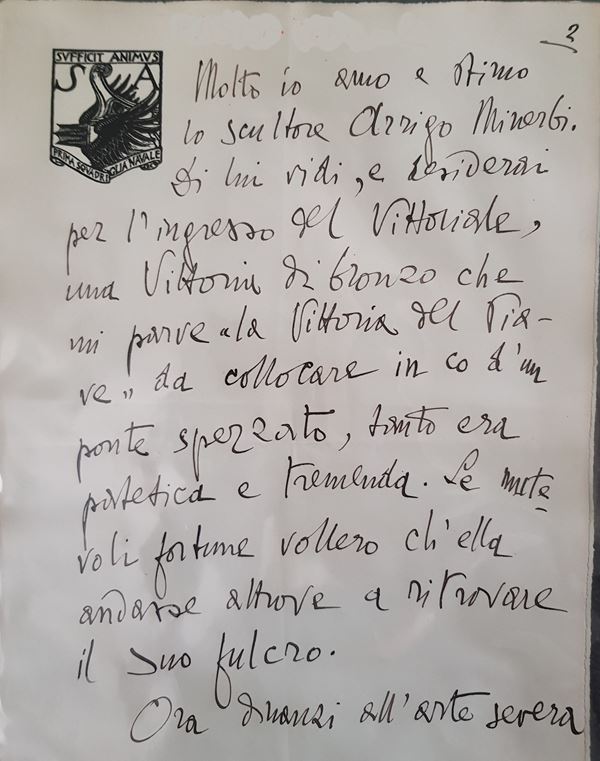 2
SVFFICIT ANIMVS
S A
PRIMA SQVADRIGLIA NAVALE
Molto io amo e stimo
lo scultore Arrigo Minerbi.
Di lui vidi, e desiderai
per l'ingresso del Vittoriale,
una Vittoria di bronzo che
mi parve "la Vittoria del Pia-
ve" da collocare in co d'un
ponte spezzato, tanto era
patetica e tremenda. Le mute-
voli fortune vollero ch'ella
andasse altrove a ritrovare
il suo fulcro.
Ora dinanzi all'arte severa